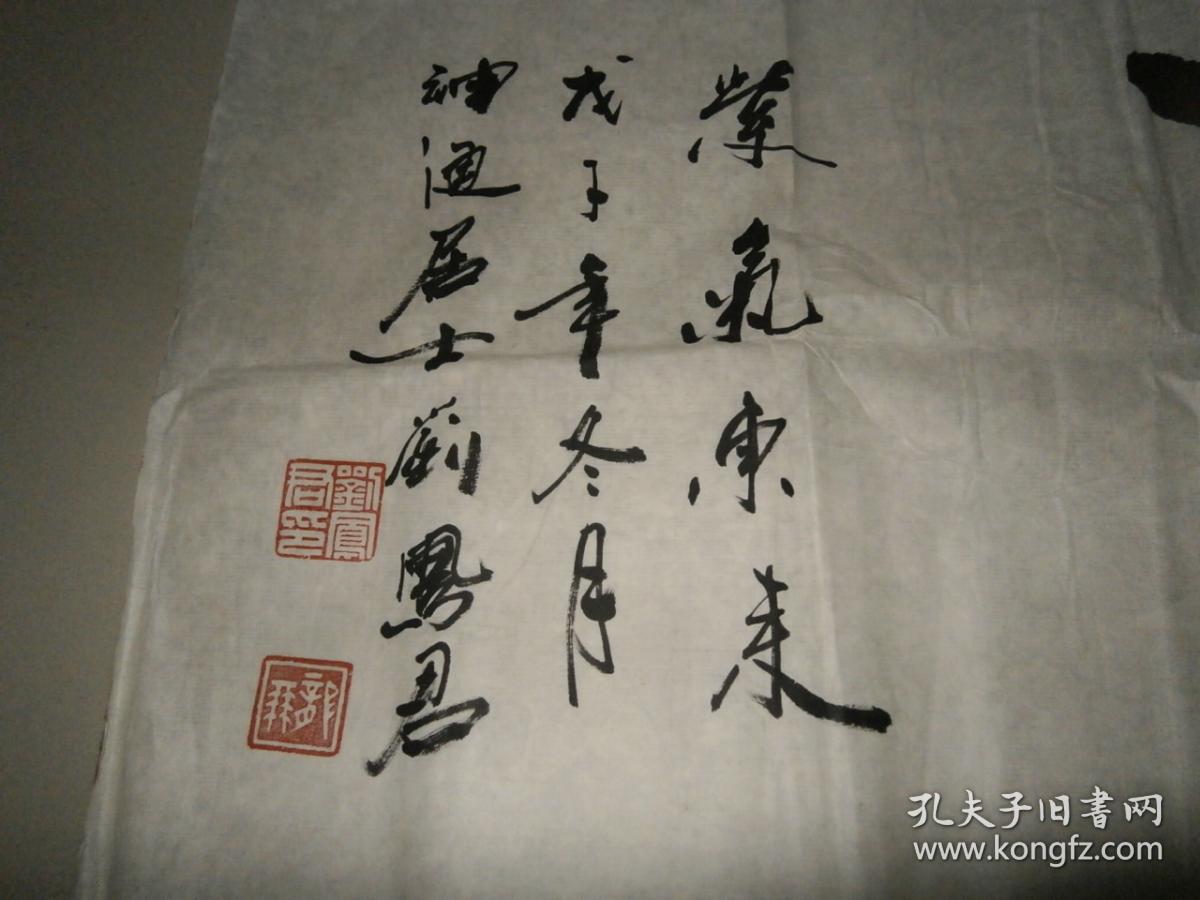 紫氣東来
戊子年冬月
神通居士劉鳳君
劉鳳
君印
孔夫子旧書网
www.kongfz.com